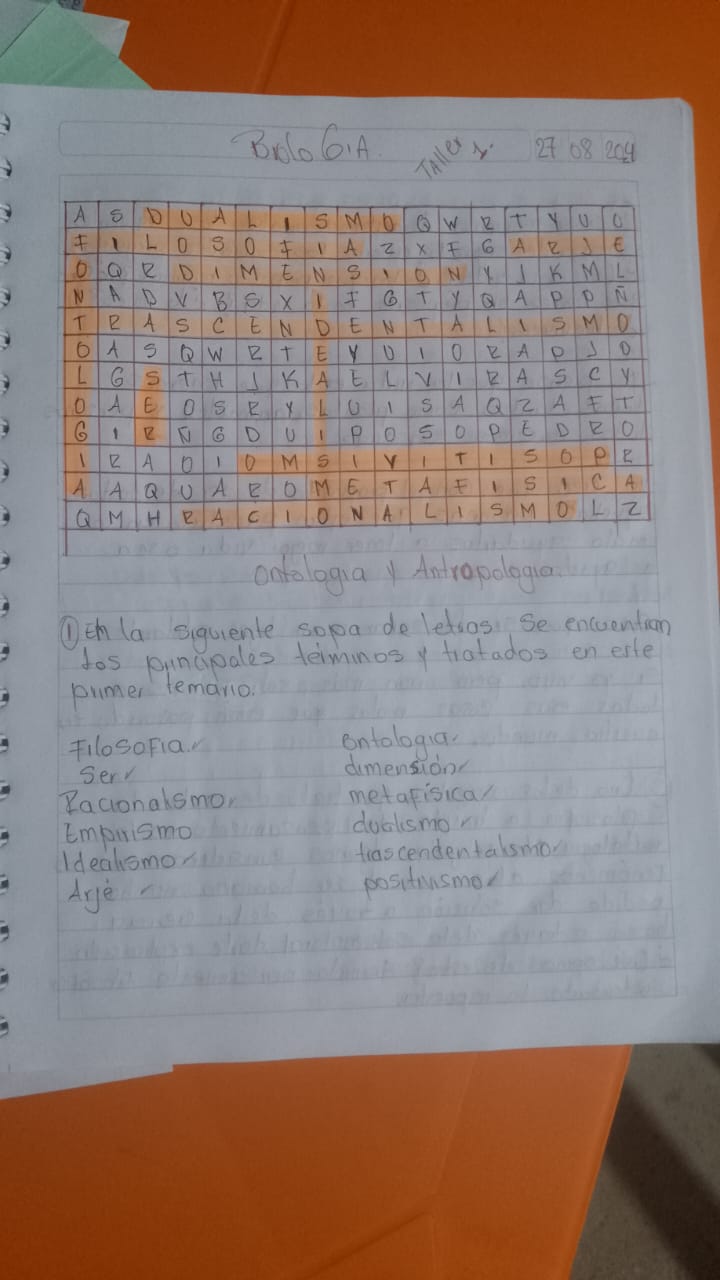 BioloGIA. TAller 1. 27 08 2024
A S D U A L I S M O Q W R T Y U O
F I L O S O F I A Z X F G A R J E
O Q R D I M E N S I O N Y J K M L
N A D V B S X I F G T Y Q A P P Ñ
T R A S C E N D E N T A L I S M O
O A S Q W R T E Y U I O R A P J O
L G S T H J K A E L V I R A S C Y
O A E O S R Y L U I S A Q Z A F T
G I R Ñ G D U I P O S O P E D R O
I R A O I O M S I V I T I S O P R
A A Q U A R O M E T A F I S I C A
Q M H R A C I O N A L I S M O L Z
Ontologia y Antropologia.
① En la siguiente sopa de letras. Se encuentran
los principales términos y tratados en este
primer temario.
Filosofia. Ontologia.
Ser dimensión
Racionalismo metafísica
Empirismo dualismo
Idealismo trascendentalismo
Arjé positivismo